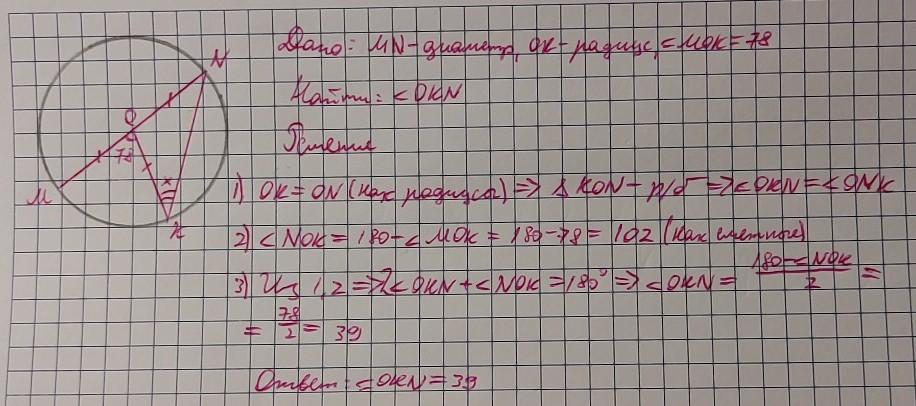 Дано: MN-диаметр, OK-радиус, <MOK=78
Найти: <OKN
Решение
1) OK=ON (как радиуса) => Δ KON - р/б => <OKN=<ONK
2) <NOK=180-<MOK=180-78=102 (как смежные)
3) Из 1,2 => 2<OKN+<NOK=180° => <OKN= 180-<NOK / 2 =
= 78/2 = 39
Ответ: <OKN=39
N
O
78
x
M
K